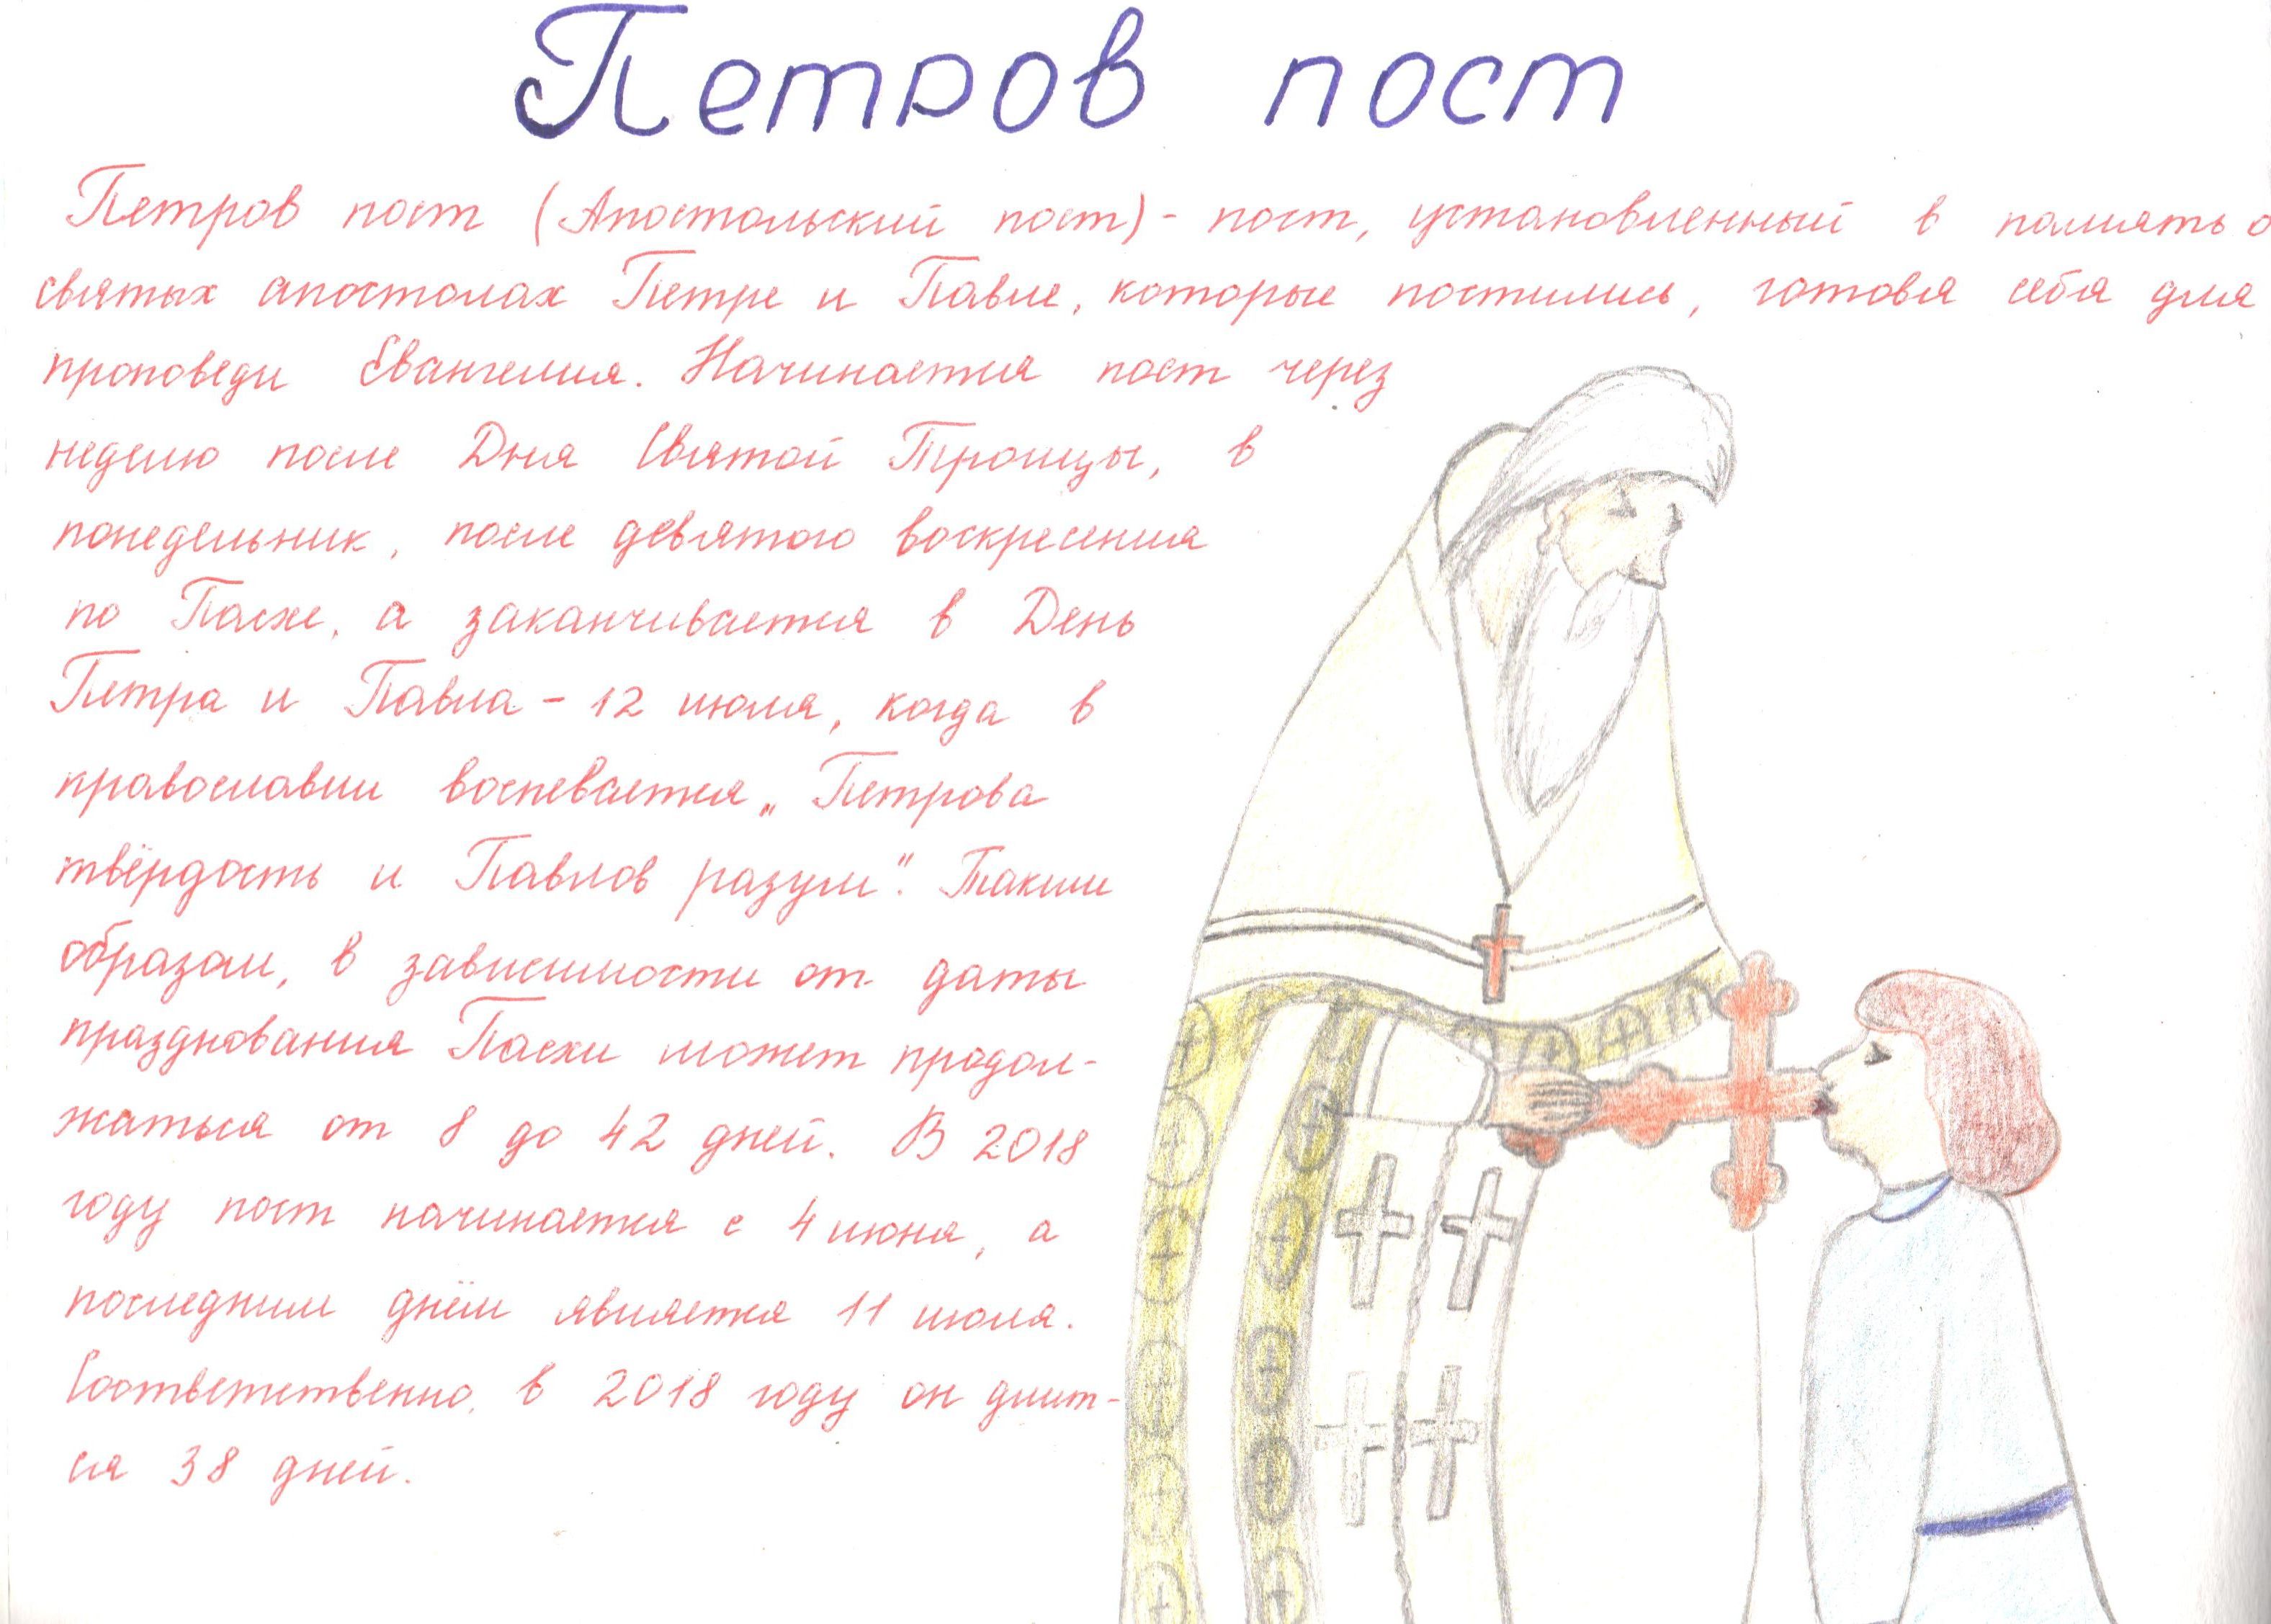 Петров пост
Петров пост (Апостольский пост) - пост, установленный в память о
святых апостолах Петре и Павле, которые постились, готовя себя для
проповеди Евангелия. Начинается пост через
неделю после Дня Святой Троицы, в
понедельник, после девятого воскресения
по Пасхе, а заканчивается в День
Петра и Павла - 12 июля, когда в
православии воспевается „Петрова
твёрдость и Павлов разум“. Таким
образом, в зависимости от даты
празднования Пасхи может продол-
жаться от 8 до 42 дней. В 2018
году пост начинается с 4 июня, а
последним днём является 11 июля.
Соответственно, в 2018 году он длит-
ся 38 дней.